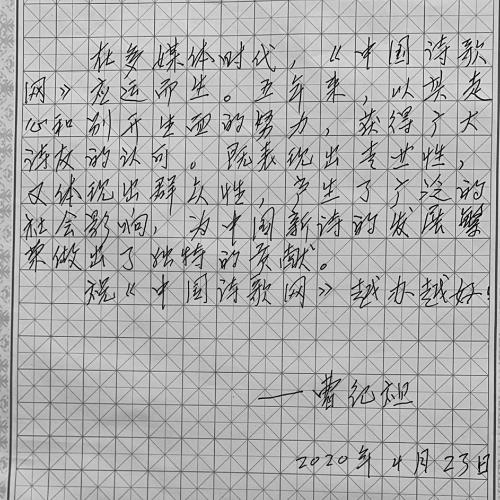 在多媒体时代，《中国诗歌
网》应运而生。五年来，以其走
心和别开生面的努力，获得广大
诗友的认可。既表现出专业性，
又体现出群众性，产生了广泛的
社会影响，为中国新诗的发展繁
荣做出了独特的贡献。
祝《中国诗歌网》越办越好！
——曹纪祖
2020年4月23日